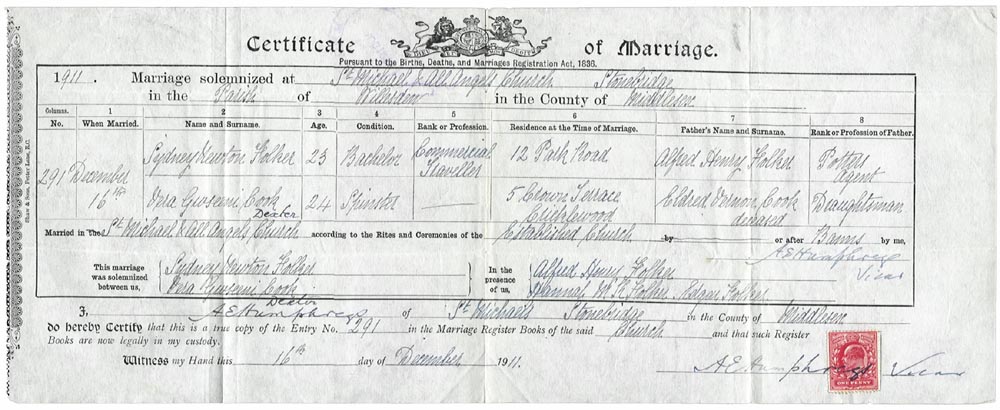 Certificate of Marriage.
Pursuant to the Births, Deaths, and Marriages Registration Act, 1836.
1911. Marriage solemnized at St Michael & All Angels Church Stonebridge
in the Parish of Willesden in the County of Middlesex
Columns. 1 2 3 4 5 6 7 8
No. When Married. Name and Surname. Age. Condition. Rank or Profession. Residence at the Time of Marriage. Father's Name and Surname. Rank or Profession of Father.
291 December 16th
Sydney Newton Folker 23 Bachelor Commercial Traveller 12 Park Road Alfred Henry Folker Potters Agent
Vera Cook Dexter 24 Spinster 5 Crown Terrace Cricklewood Eldred Vernon Cook deceased Draughtsman
Married in the St Michael & All Angels Church according to the Rites and Ceremonies of the Established Church by or after Banns by me,
A E Humphreys
Vicar
This marriage was solemnized between us,
Sydney Newton Folker
Vera Cook
Dexter
In the presence of us,
Alfred Henry Folker
Hannah Folker Folker
I, A E Humphreys of St Michaels Stonebridge in the County of Middlesex
do hereby Certify that this is a true copy of the Entry No. 291 in the Marriage Register Books of the said Church and that such Register
Books are now legally in my custody.
Witness my Hand this 16th day of December 1911.
A E Humphreys Vicar
ONE PENNY